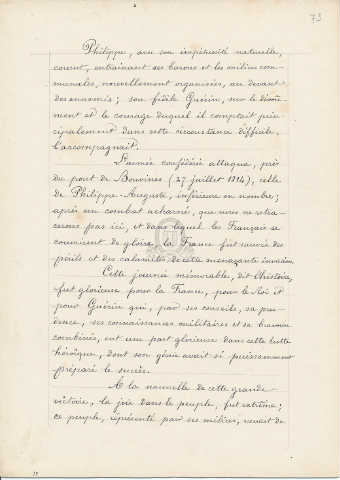 73
Philippe, avec son impétuosité naturelle,
courut, entraînant ses barons et les milices com-
munales, nouvellement organisées, au devant
des ennemis ; son fidèle Guérin, sur le dévoû-
ment et le courage duquel il comptait prin-
cipalement dans cette circonstance difficile,
l'accompagnait.
L'armée confédérée attaqua, près
du pont de Bouvines (27 juillet 1214), celle
de Philippe-Auguste, inférieure en nombre ;
après un combat acharné, que nous ne retra-
cerons pas ici, et dans lequel les Français se
couvrirent de gloire, la France fut sauvée des
périls et des calamités de cette menaçante invasion.
Cette journée mémorable, dit l'histoire,
fut glorieuse pour la France, pour le Roi et
pour Guérin qui, par ses conseils, sa pru-
dence, ses connaissances militaires et sa bravoure
combinées, eut une part glorieuse dans cette lutte
héroïque, dont son génie avait si puissamment
préparé le succès.
A la nouvelle de cette grande
victoire, la joie dans le peuple, fut extrême ;
ce peuple, représenté par ses milices, venait de